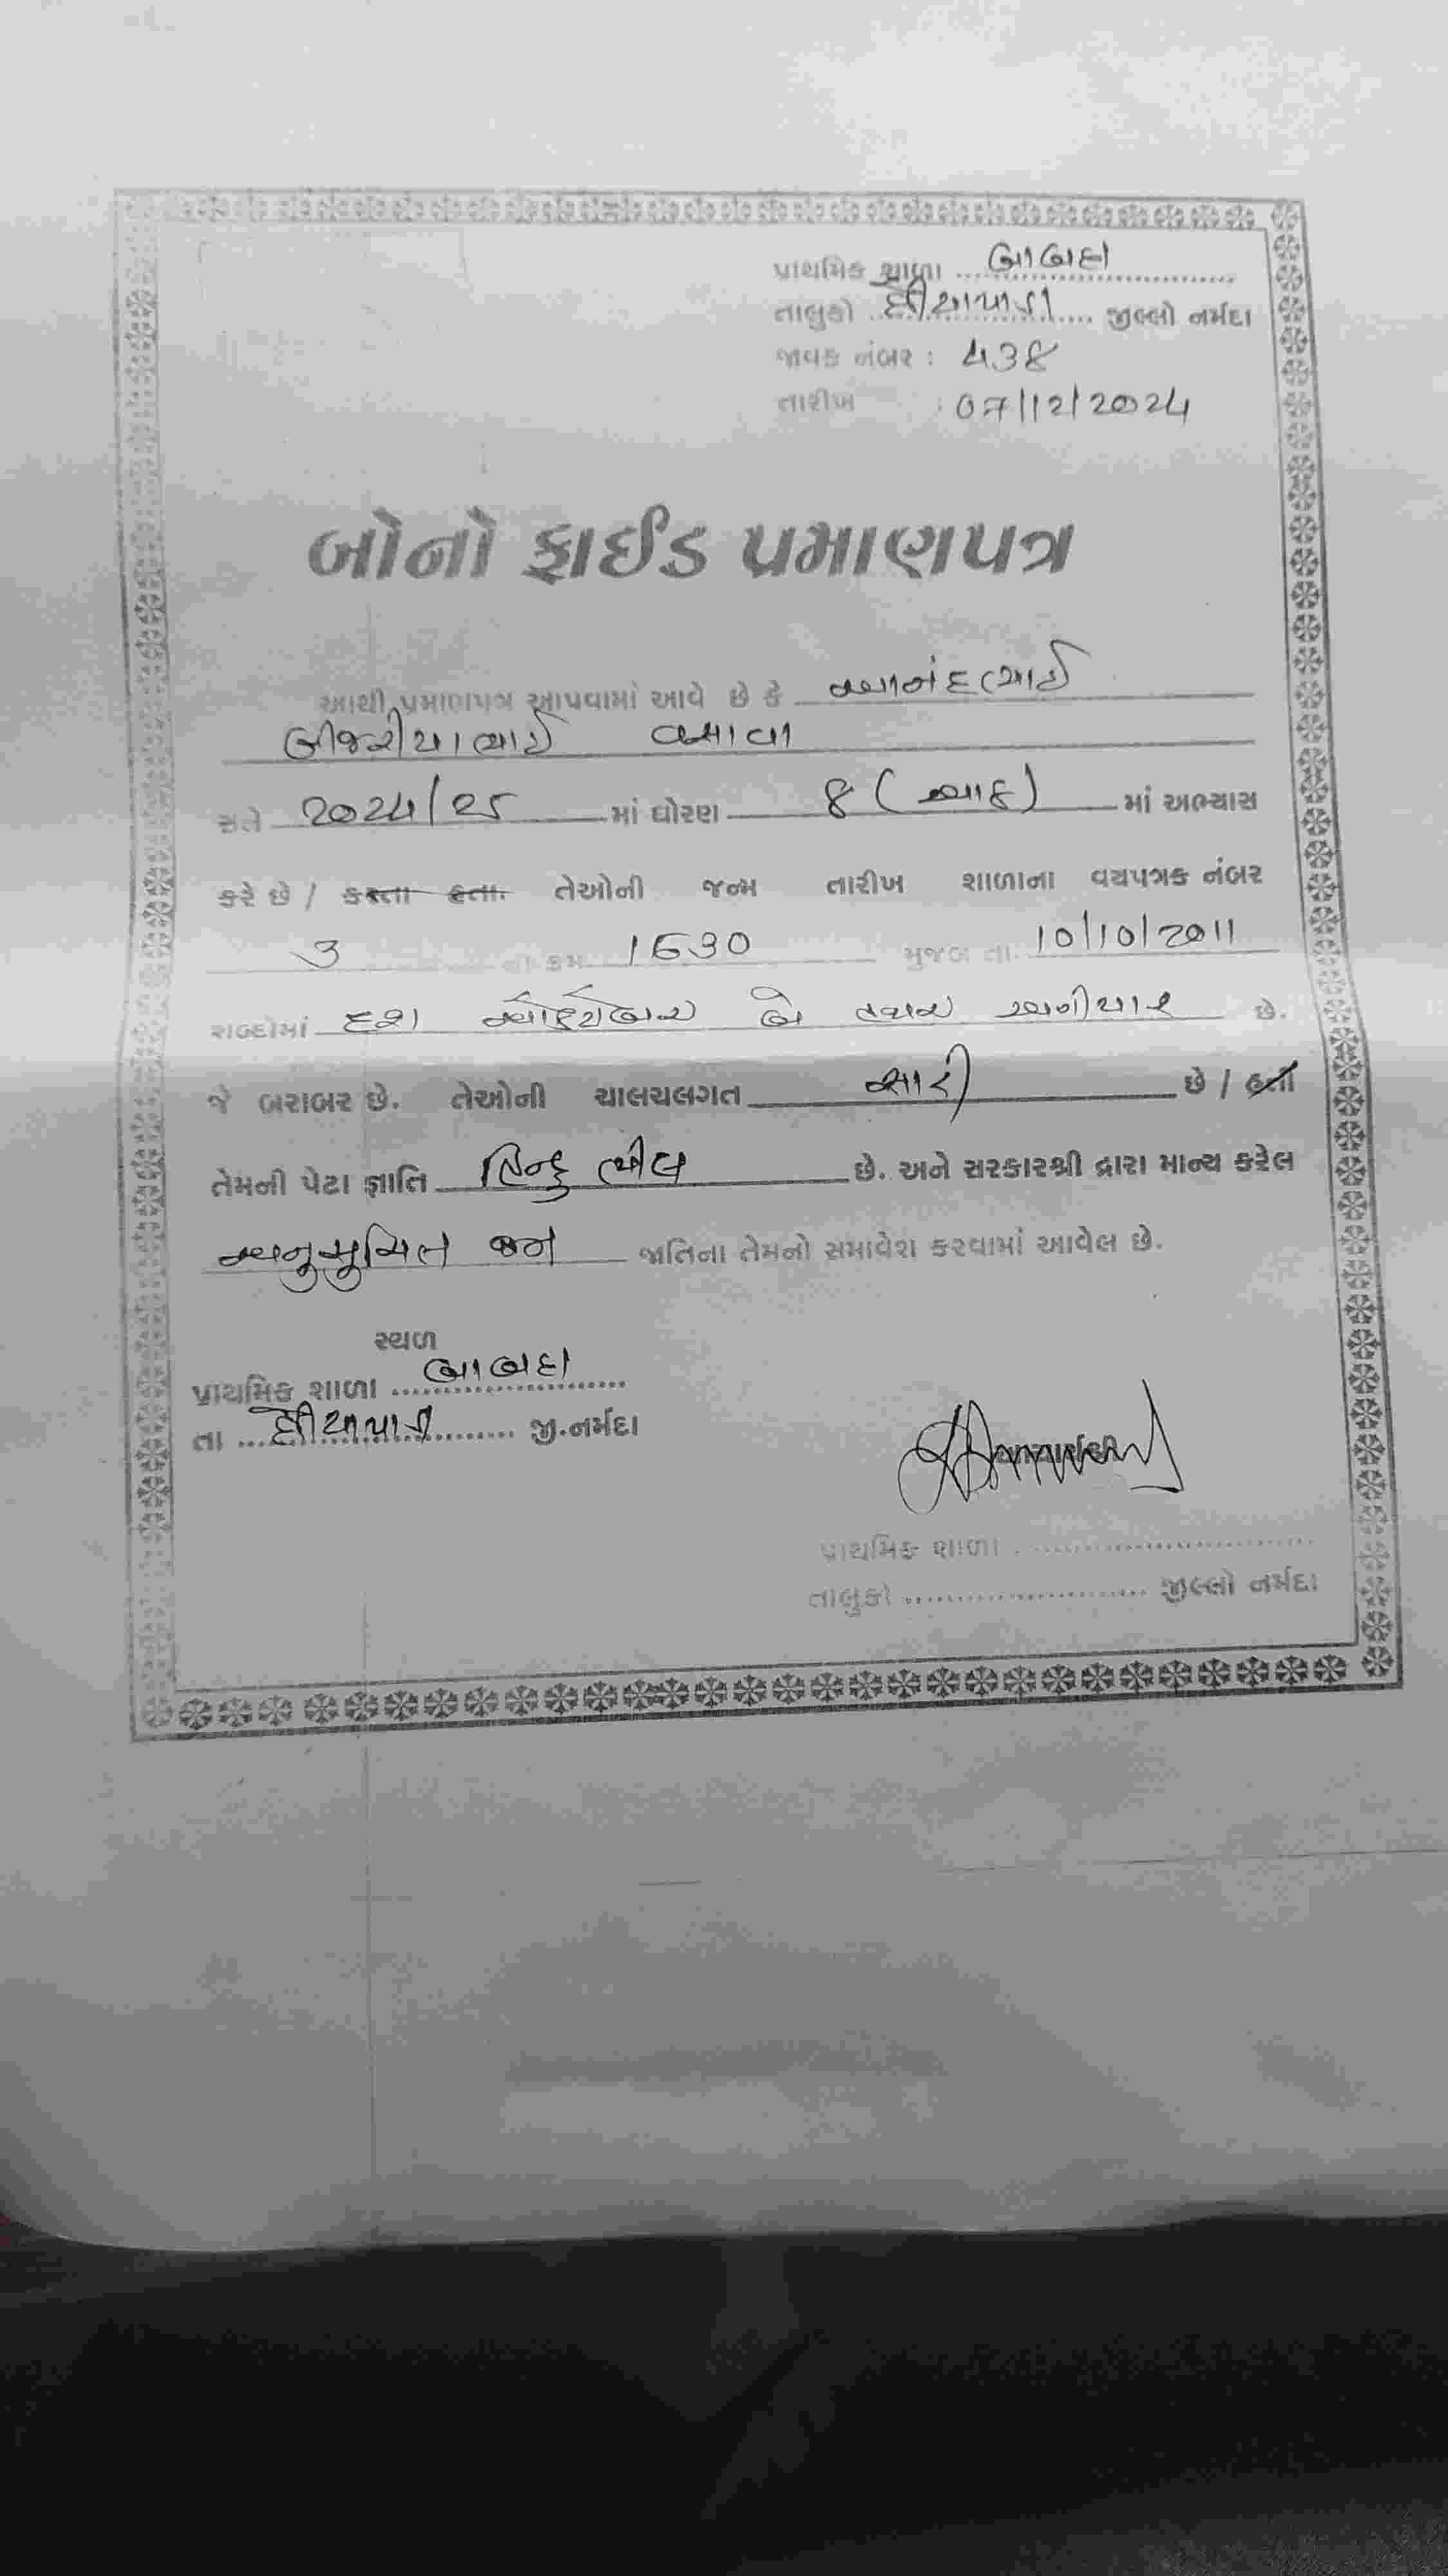 પ્રાથમિક શાળા બાબદા
તાલુકો દેડીયાપાડા જીલ્લો નર્મદા
જાવક નંબર : 438
તારીખ : 07/12/2024
બોનો ફાઈડ પ્રમાણપત્ર
આથી પ્રમાણપત્ર આપવામાં આવે છે કે આનંદભાઈ
વસાવા
સને 2024/25 માં ધોરણ 8 (આઠ) માં અભ્યાસ
કરે છે / કરતા હતા. તેઓની જન્મ તારીખ શાળાના વયપત્રક નંબર
૩ ના ક્રમ 1630 મુજબ તા. 10/10/2011
શબ્દોમાં દશ ઓક્ટોબર બે હજાર અગીયાર છે.
જે બરાબર છે. તેઓની ચાલચલગત સારી છે / હતી
તેમની પેટા જ્ઞાતિ હિન્દુ ભીલ છે. અને સરકારશ્રી દ્વારા માન્ય કરેલ
અનુસુચિત જન જાતિના તેમનો સમાવેશ કરવામાં આવેલ છે.
સ્થળ
પ્રાથમિક શાળા બાબદા
તા દેડીયાપાડા જી.નર્મદા
પ્રાથમિક શાળા
તાલુકો જીલ્લો નર્મદા